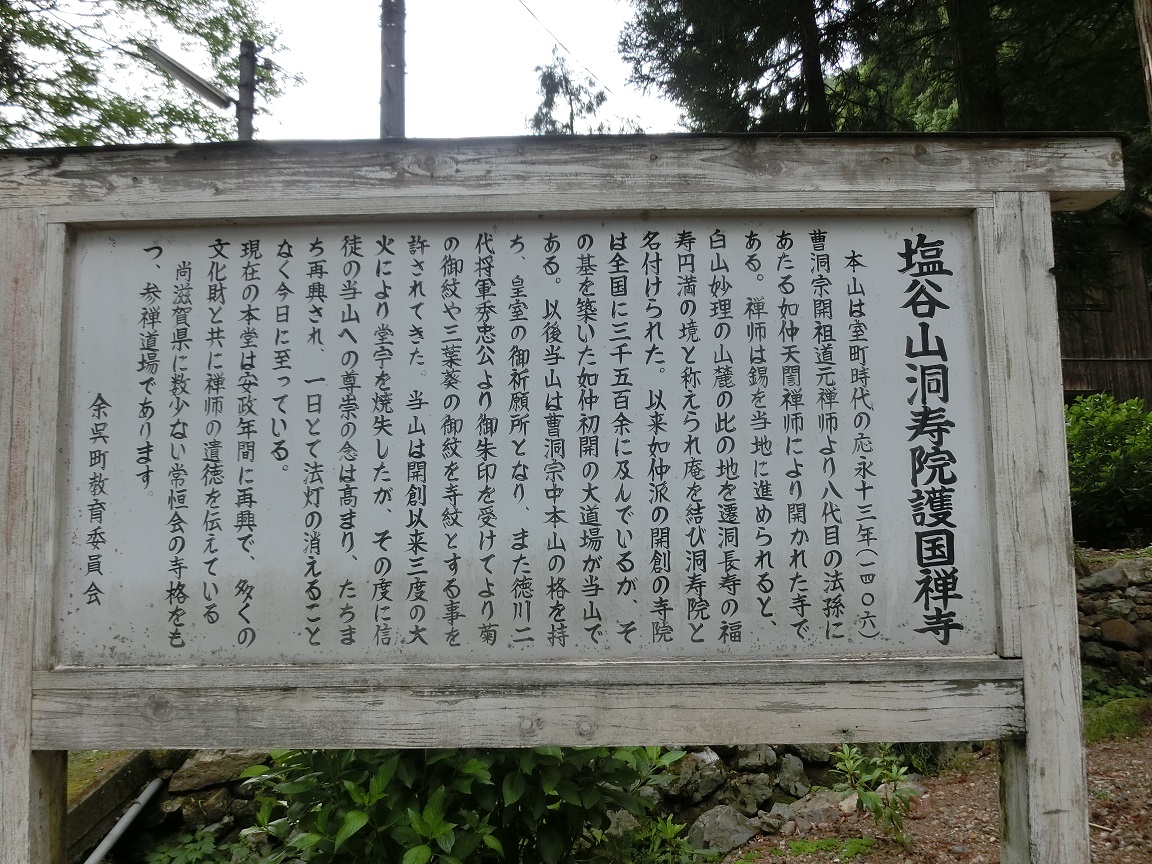 塩谷山洞寿院護国禅寺
本山は室町時代の応永十三年(一四〇六)
曹洞宗開祖道元禅師より八代目の法孫に
あたる如仲天誾禅師により開かれた寺で
ある。禅師は錫を当地に進められると、
白山妙理の山麓の比の地を遷洞長寿の福
寿円満の境と称えられ庵を結び洞寿院と
名付けられた。以来如仲派の開創の寺院
は全国に三千五百余に及んでいるが、そ
の基を築いた如仲初開の大道場が当山で
ある。以後当山は曹洞宗中本山の格を持
ち、皇室の御祈願所となり、また徳川二
代将軍秀忠公より御朱印を受けてより菊
の御紋や三葉葵の御紋を寺紋とする事を
許されてきた。当山は開創以来三度の大
火により堂宇を焼失したが、その度に信
徒の当山への尊崇の念は高まり、たちま
ち再興され、一日とて法灯の消えること
なく今日に至っている。
現在の本堂は安政年間に再興で、多くの
文化財と共に禅師の遺徳を伝えている
尚滋賀県に数少ない常恒会の寺格をも
つ、参禅道場であります。
余呉町教育委員会